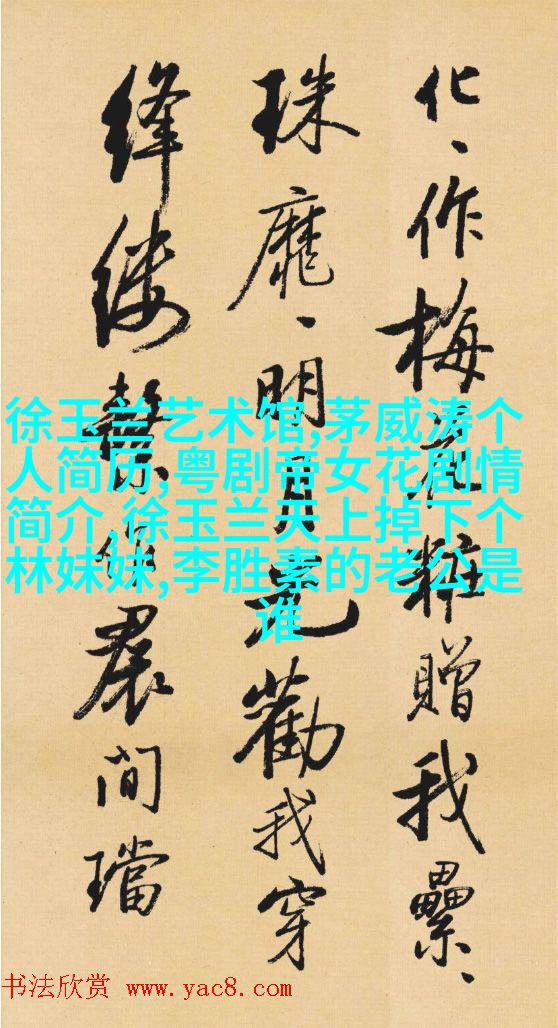 化、作梅花粧贈我纍、
珠靡、明月光勸我穿
絳縷繫作裠間璫
徐玉兰艺术馆,茅威涛个
人简历,粤剧帝女花剧情
简介,徐玉兰天上掉下个
林妹妹,李胜素的老公是
谁
书法欣赏 www.yac8.com